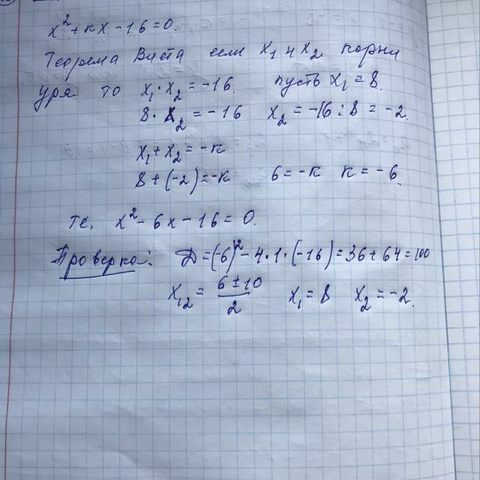 x² + кx - 16 = 0.
Теорема Виета если x₁ и x₂ корни
ур-я то x₁ · x₂ = -16. пусть x₁ = 8.
8 · x₂ = -16 x₂ = -16 : 8 = -2.
x₁ + x₂ = -к
8 + (-2) = -к 6 = -к к = -6.
те. x² - 6x - 16 = 0.
Проверка: D = (-6)² - 4 · 1 · (-16) = 36 + 64 = 100
x₁₂ = (6 ± 10)/2 x₁ = 8 x₂ = -2.